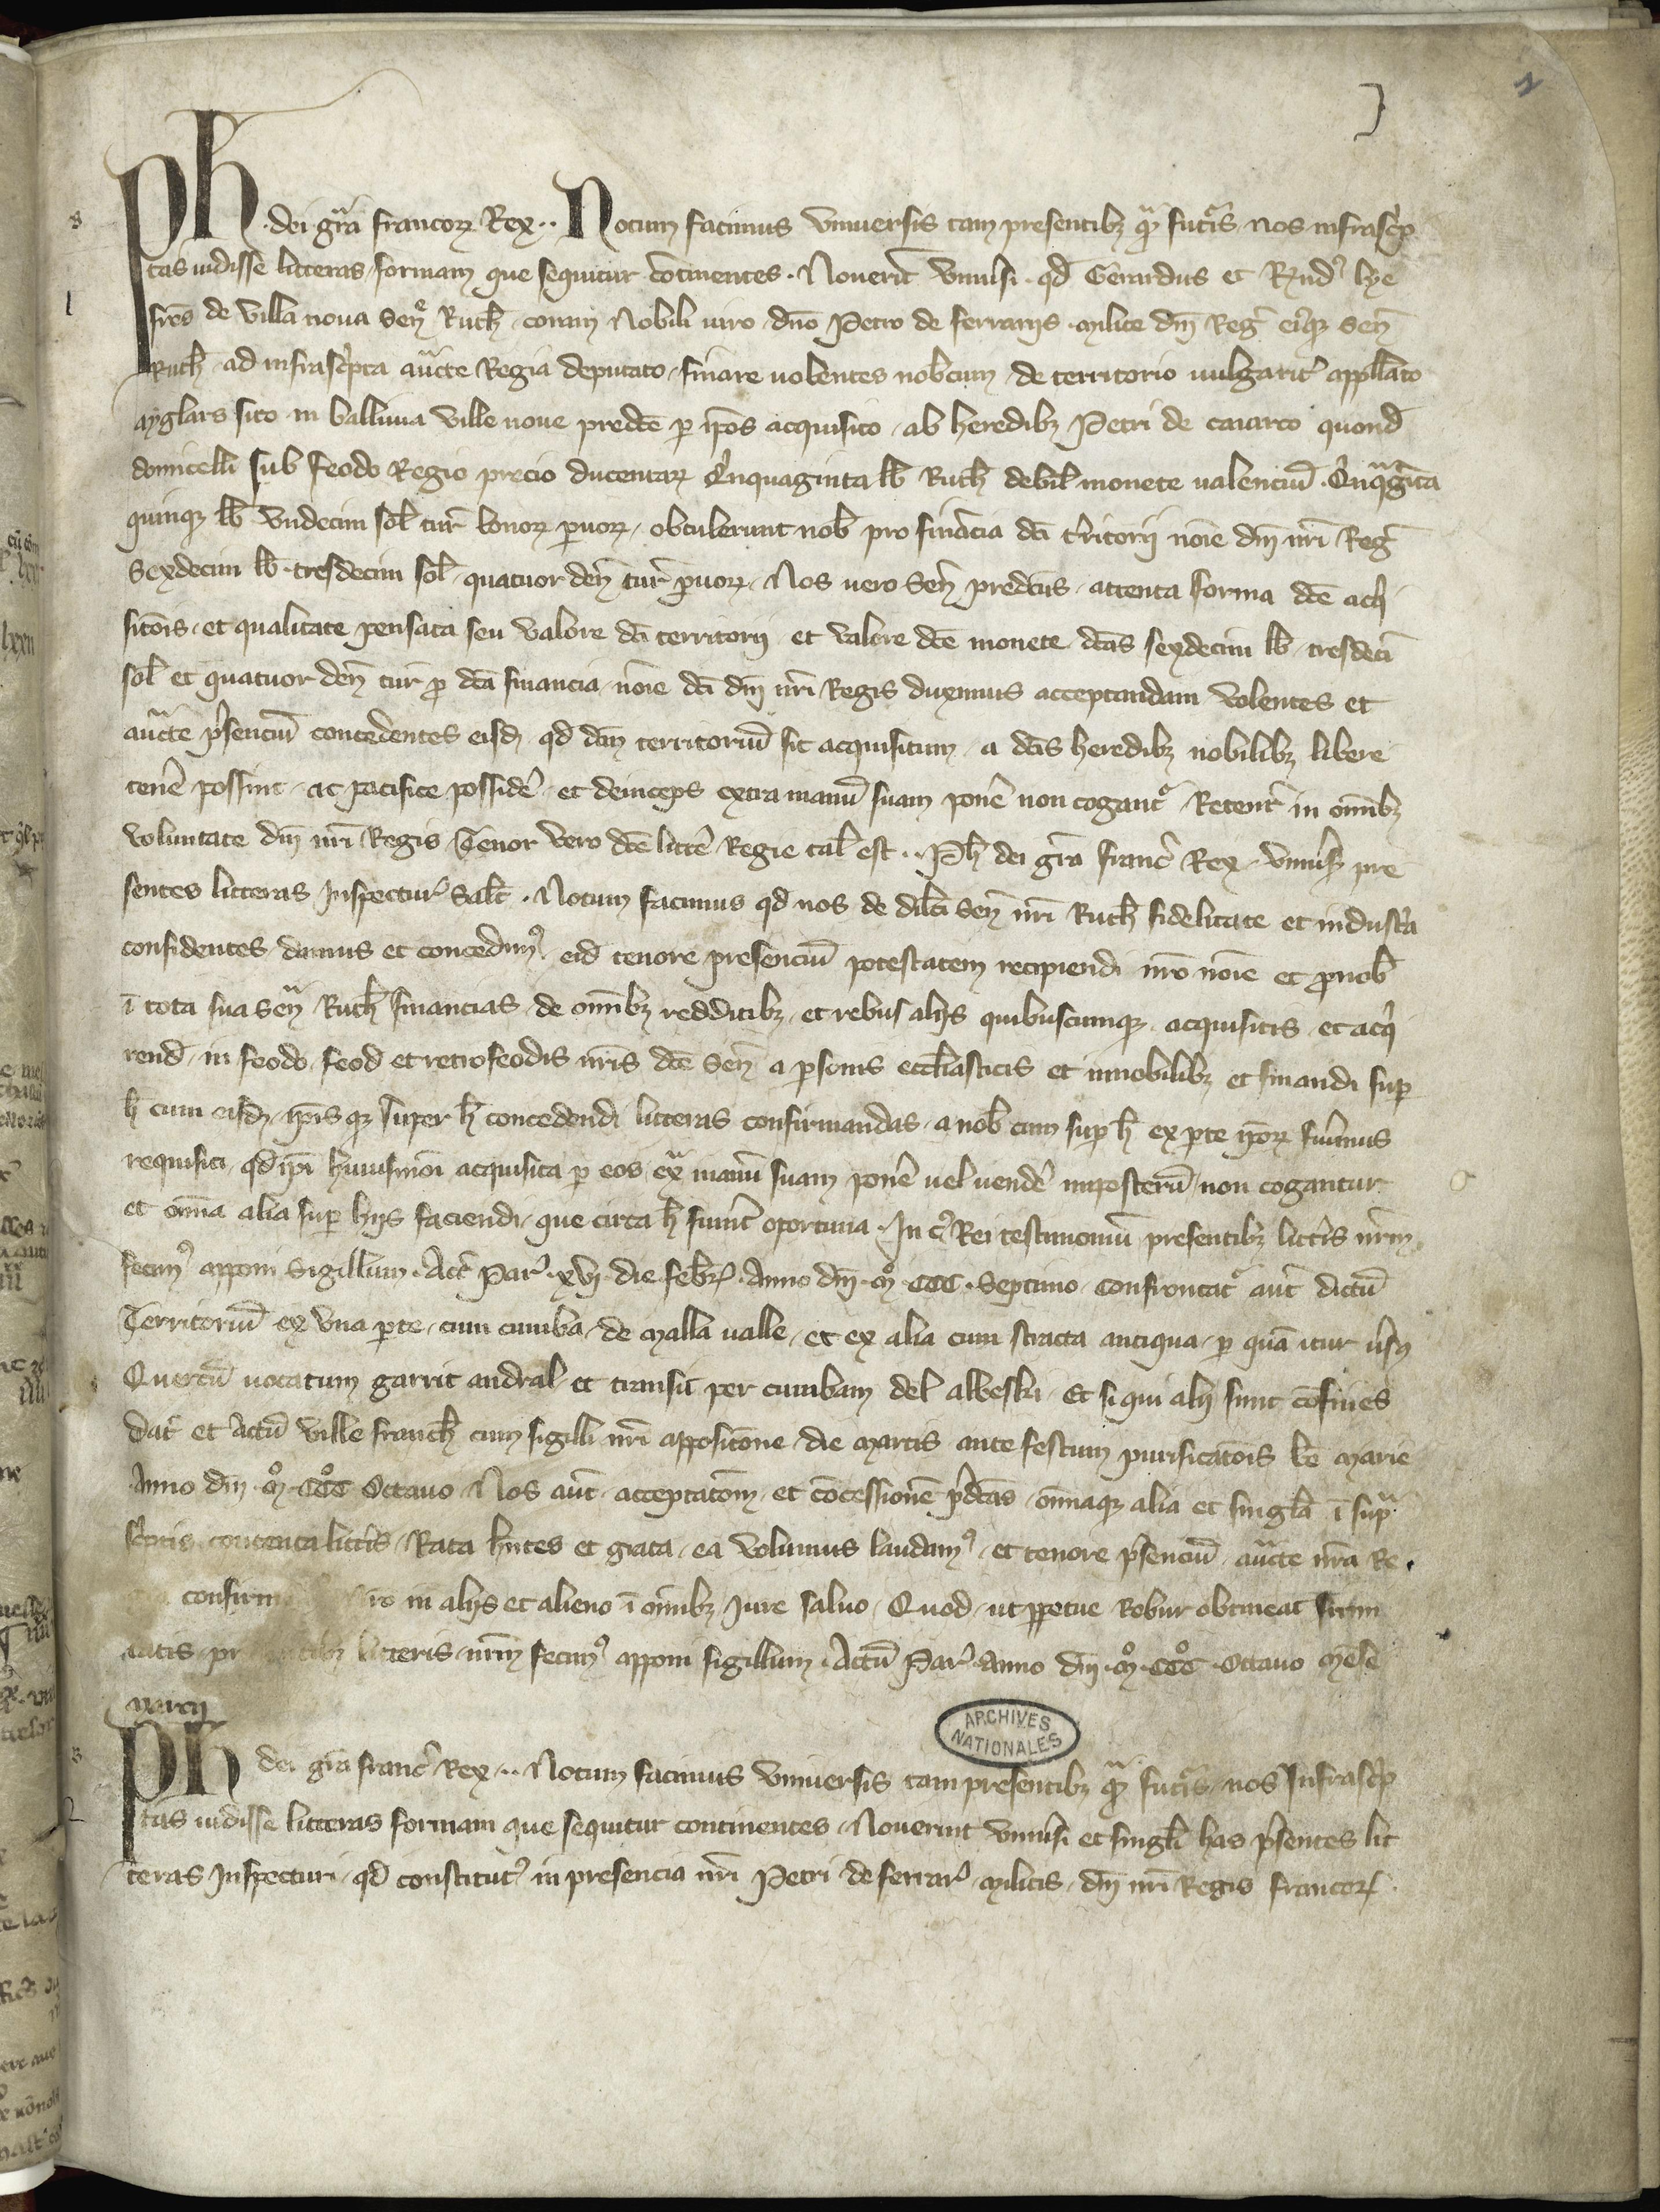 Ph dei gra francoꝝ Rex .. Notum facimus Vniuersis tam presentibꝫ qᵃm futuris nos infrascrip
tas uidisse litteras formam que sequitur continentes. Nouerit Vniuersi qd Gerardus et
fres de Villa noua Senᵉ Ruth coram Nobili uiro dno Petro de ferrarijs milite dnj Reg eiusqꝫ Sen
Ruth ad infrascripta aucte Regia deputato finare uolentes nobcum de territorio uulgarit appllato
ayglars sito in balliuia Ville noue predce p ipos acquisito ab heredibꝫ Petri de caiarco quond
domicelli sub feodo Regio precio ducentaꝝ Cinquaginta lb Ruth debil monete ualenciu Cinqᵃginta
quinqꝫ lb Vndecim sol tur bonoꝝ paruoꝝ obtulerunt nob pro financia dci tritorij noie dnj nri Reg
Sexdecim lb tresdecim sol quatuor den tur paruoꝝ Nos uero Sen predcus attenta forma dce acq
sitois et qualitate pensata seu Valore dci territorij et Valore dce monete dcas sexdecim lb tresdeci
sol et quatuor den tur p dca financia noie dci dnj nri Regis duximus acceptandam Volentes et
aucte psenciu concedentes eisd qd dcm territoriu sic acquisitum a dcis heredibꝫ nobilibꝫ libere
tene possint ac pacifice posside et deinceps extra manu suam pone non cogant Retent in omibꝫ
Voluntate dnj nri Regis Tenor Vero dce littere Regie tal est .. Ph dei gra franc Rex Vniuersis pre
sentes litteras Inspectur Salt. Notum facimus qd nos de dilcti Sen nri Ruth fidelitate et industria
confidentes damus et concedimꝰ eid tenore presenciu potestatem recipiendi nro noie et pnob
i tota sua Sen Ruth financias de omibꝫ redditibꝫ et rebus alijs quibuscumqꝫ acquisitis et acqi
rend in feodo feod et retrofeodis nris dce Sen a psonis eccliasticis et innobilibꝫ et finandi sup
h cum eisd ipis qꝫ super h concedendi litteras confirmandas a nob cum sup h ex pte ipoꝝ fuimus
requisiti qd ipi huiusmoi acquisita p eos exᵃ manu suam pone uel uende imposteru non cogantur
et omia alia sup hijs faciendi que circa h fuint oportuna. In cꝰ Rei testimoniu presentibꝫ litteris nrm
fecimꝰ apponi Sigillum. Act Par xvj die febr. Anno dnj mº CCC Septimo Confrontat aut dictu
Territoriu ex Vna pte cum cumba de malla ualle et ex alia cum stracta antiqua p qua itur usqꝫ
Quercu uocatum garrit andral et transit per cumbam del albeski Et si qui alij sunt cofines
Dat et Actu Ville franch cum sigilli nri appositone die martis ante festum purificatois be marie
Anno dnj mº CCCº Octauo Nos aut acceptatom et cocessione pdcas omiaqꝫ alia et singla i supᵃ
scriptis contenta litteris Rata hntes et grata ea Volumus laudamꝰ et tenore psenciu aucte nra Re
confirm ro in alijs et alieno i omibꝫ Iure saluo Quod ut ppetue Robur obtineat firmi
tatis pr litteris nrm fecimꝰ apponi sigillum. Actu Par Anno dnj mº CCCº Octauo mese
marcij
ARCHIVES
NATIONALES
Ph dei gra franc Rex .. Notum facimus Vniuersis tam presentibꝫ qᵃm futuris nos Infrascrip
tas uidisse litteras formam que sequitur continentes Nouerint Vniuersi et singuli has psentes lit
teras Inspecturi qd constitutꝰ in presencia nri Petri de ferrar militis dnj nri Regis francoꝝ